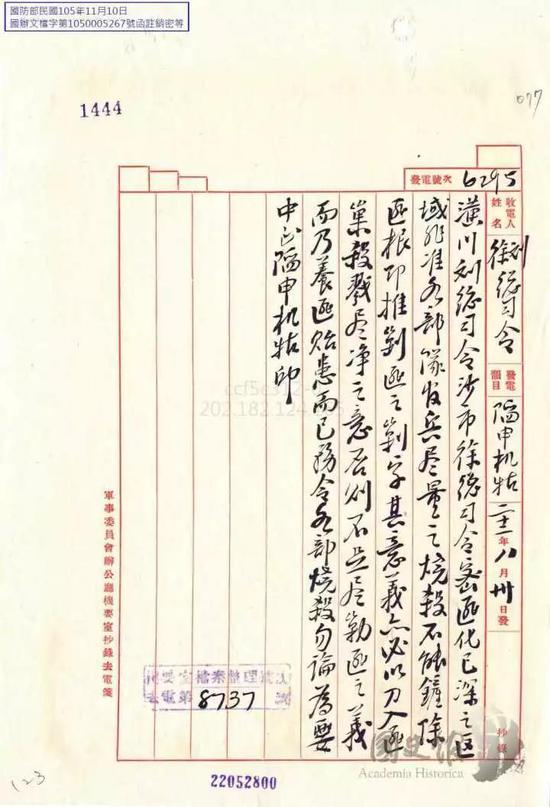 國防部民國105年11月10日
國辦文檔字第1050005267號函註銷密等
1444
077
發電號次 6295
收電人姓名 劉徐總司令
發電韻目 陷申机牯 二十一年八月卅日發
潢川刘總司令沙市徐總司令密匪化已深之区
域非准各部隊官兵尽量之燒殺不能鏟除
匪根即推剿匪之剿字其意義亦必以刀入匪
巢殺戮尽净之意否则不足尽剿匪之義
而乃養匪貽患而已務令各部燒殺勿論為要
中正陷申机牯印
抄錄
軍事委員會辦公廳機要室抄錄去電箋
機要室檔案整理
去電第8737號
國史館
Academia Historica
202.182.124
22052800
123